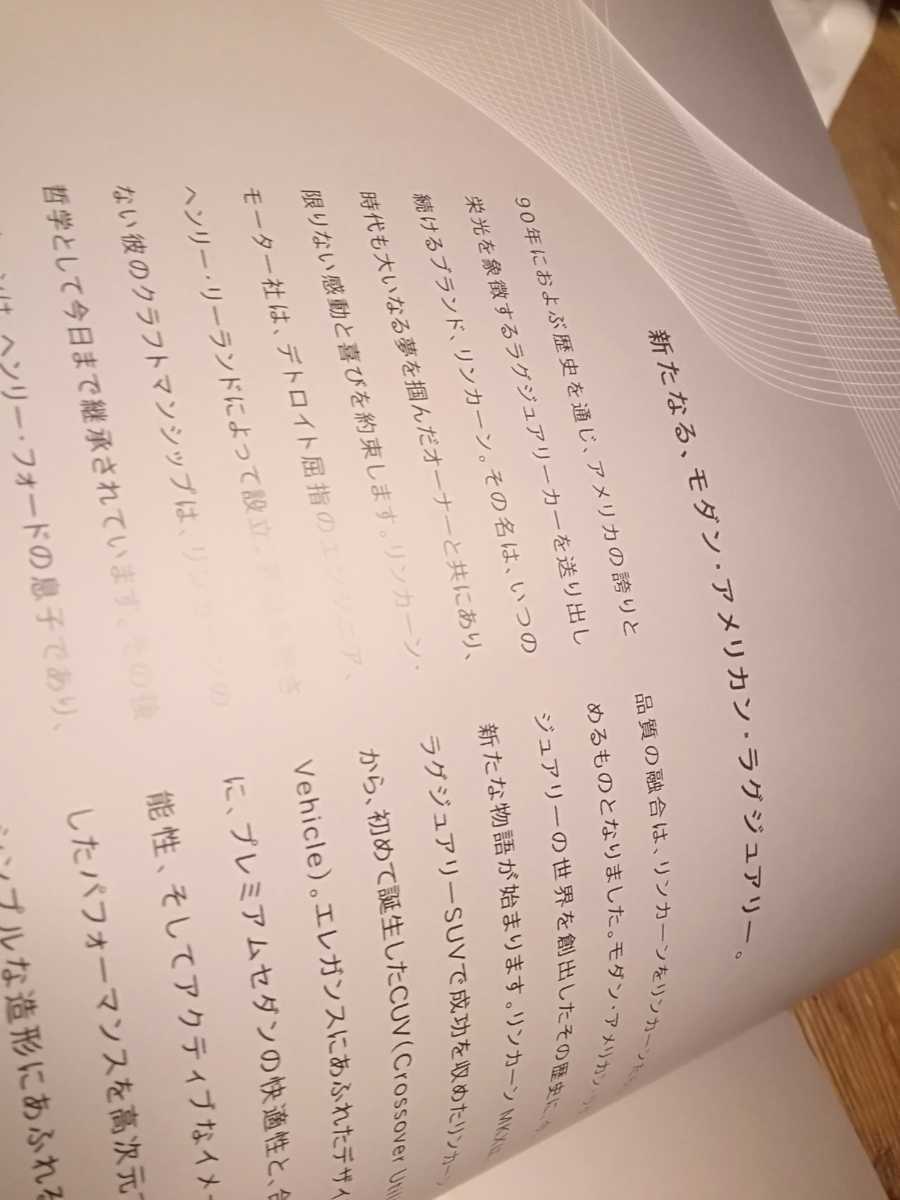 新たなる、モダン・アメリカン・ラグジュアリー。
90年におよぶ歴史を通じ、アメリカの誇りと
栄光を象徴するラグジュアリーカーを送り出し
続けるブランド、リンカーン。その名は、いつの
時代も大いなる夢を掴んだオーナーと共にあり、
限りない感動と喜びを約束します。リンカーン・
モーター社は、デトロイト屈指のエンジニア、
ヘンリー・リーランドによって設立。
ない彼のクラフトマンシップは、リンカーンの
哲学として今日まで継承されています。その後
ヘンリー・フォードの息子であり、
品質の融合は、リンカーンをリンカーン
めるものとなりました。モダン・アメリカン・
ジュアリーの世界を創出したその歴史に、
新たな物語が始まります。リンカーン MKX
ラグジュアリーSUVで成功を収めたリンカーン
から、初めて誕生したCUV(Crossover
Vehicle)。エレガンスにあふれたデザイ
に、プレミアムセダンの快適性と、
能性、そしてアクティブなイメ
したパフォーマンスを高次元
シンプルな造形にあふれる